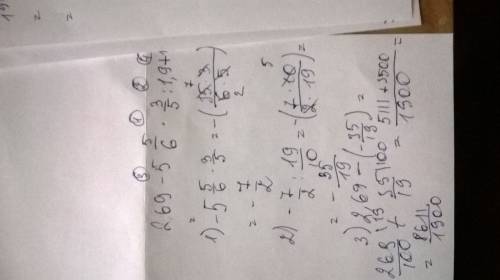 ③ ① ② ④
2,69 - 5 5/6 · 3/5 : 1,9 + 1
1) -5 5/6 · 3/5 = -(35 · 3 / 6 · 5) =
= -7/2
2) -7/2 : 19/10 = -(7 · 10 / 2 · 19) =
= -35/19
3) 2,69 - (-35/19) =
269/100 + 35/19 = 5111 + 3500 / 1900 =
= 8611/1900